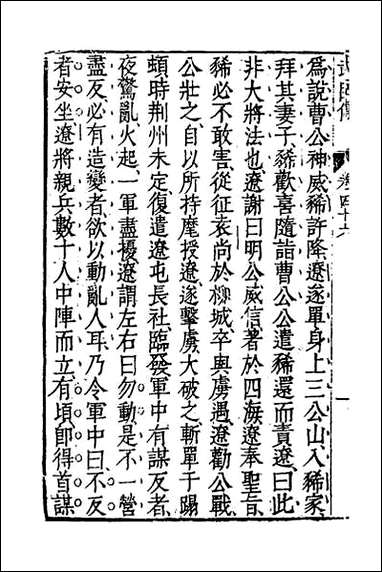 卷四十六
為說曹公神威豨許降遼遂單身上三公山入豨家
拜其妻子豨歡喜隨詣曹公公遣豨還而責遼曰此
非大將法也遼謝曰明公威信著於四海遼奉聖旨
豨必不敢害從征袁尚於柳城卒與虜遇遼勸公戰
公壯之自以所持麾授遼遂擊虜大破之斬單于蹋
頓時荆州未定復遣遼屯長社臨發軍中有謀反者
夜驚亂火起一軍盡擾遼謂左右曰勿動是不一營
盡反必有造變者欲以動亂人耳乃令軍中曰不反
者安坐遼將親兵數十人中陣而立有頃即得首謀